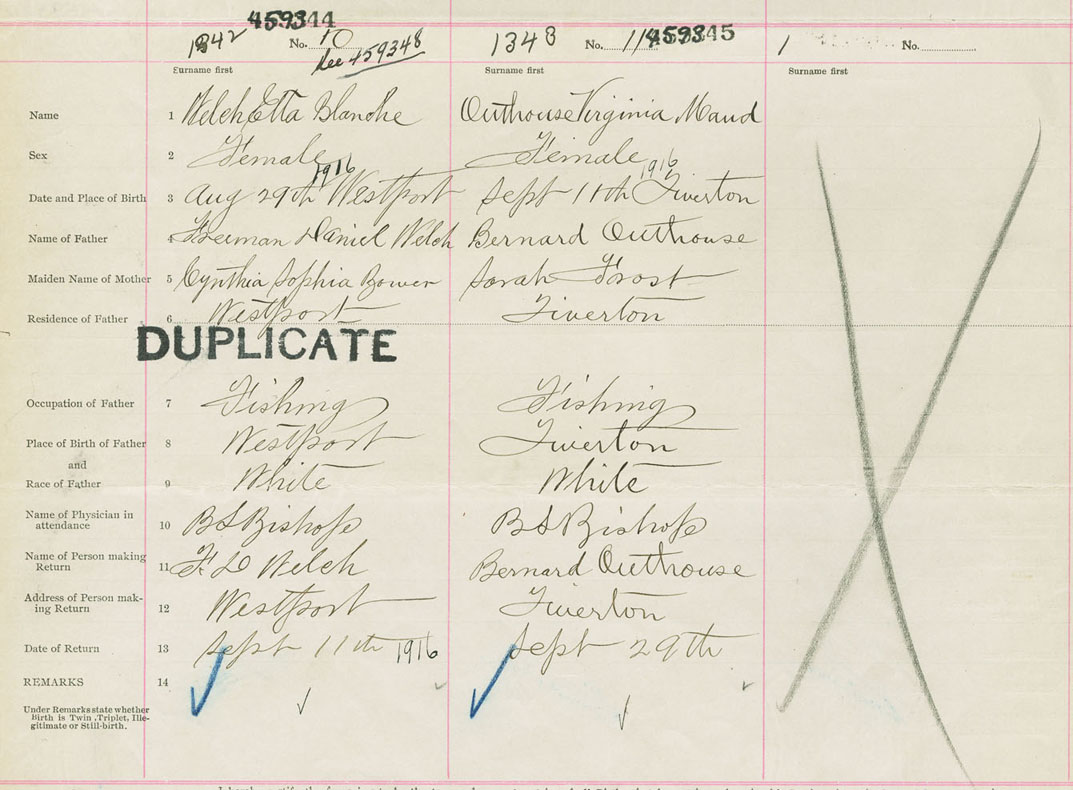 459344
1342 No. 10 1343 No. 11 459345 1 No.
See 459348
Surname first Surname first Surname first
Name 1 Welch Etta Blanche Outhouse Virginia Maud
Sex 2 Female Female
1916 1916
Date and Place of Birth 3 Aug 29th Westport Sept 11th Tiverton
Name of Father 4 Freeman Daniel Welch Bernard Outhouse
Maiden Name of Mother 5 Cynthia Sophia Bower Sarah Frost
Residence of Father 6 Westport Tiverton
DUPLICATE
Occupation of Father 7 Fishing Fishing
Place of Birth of Father 8 Westport Tiverton
and
Race of Father 9 White White
Name of Physician in
attendance 10 BS Bishop BS Bishop
Name of Person making
Return 11 F. D Welch Bernard Outhouse
Address of Person mak-
ing Return 12 Westport Tiverton
Date of Return 13 Sept 11th 1916 Sept 29th
REMARKS 14
Under Remarks state whether
Birth is Twin, Triplet, Ille-
gitimate or Still-birth.